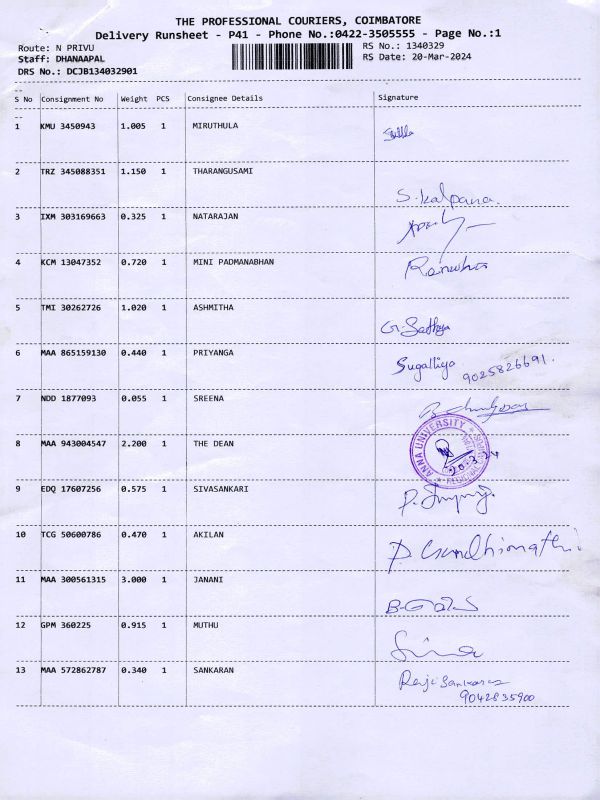 THE PROFESSIONAL COURIERS, COIMBATORE
Delivery Runsheet - P41 - Phone No.:0422-3505555 - Page No.:1
Route: N PRIVU
RS No.: 1340329
Staff: DHANAAPAL
RS Date: 20-Mar-2024
DRS No.: DCJB134032901
S No Consignment No Weight PCS Consignee Details Signature
1 KMU 3450943 1.005 1 MIRUTHULA
2 TRZ 345088351 1.150 1 THARANGUSAMI S. Kalpana.
3 IXM 303169663 0.325 1 NATARAJAN
4 KCM 13047352 0.720 1 MINI PADMANABHAN
5 TMI 30262726 1.020 1 ASHMITHA G. Sathya
6 MAA 865159130 0.440 1 PRIYANGA 9025826691.
7 NDD 1877093 0.055 1 SREENA
8 MAA 943004547 2.200 1 THE DEAN ANNA UNIVERSITY REGIONAL 20.3.24
9 EDQ 17607256 0.575 1 SIVASANKARI
10 TCG 50600786 0.470 1 AKILAN P. Gandhimathi
11 MAA 300561315 3.000 1 JANANI
12 GPM 360225 0.915 1 MUTHU
13 MAA 572862787 0.340 1 SANKARAN
9042835900